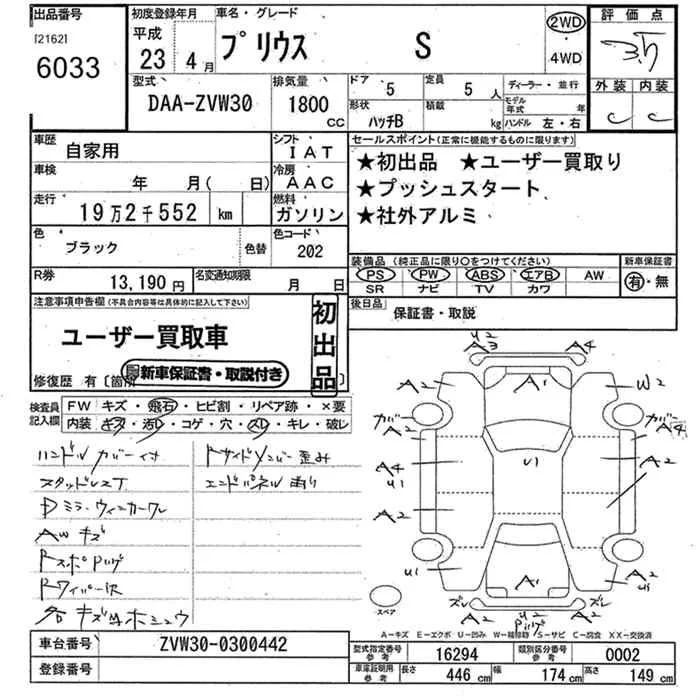 出品番号 初度登録年月 車名・グレード 評価点
[2162] 平成 2WD
6033 23年 4月 プリウス S ・4WD 3.5
型式 排気量 ドア 5 定員 5人 ディーラー・並行 外装 内装
DAA-ZVW30 1800cc 形状 ハッチB 積載 kg モデル年式 年 C C
ハンドル 左・右
車歴 自家用 シフト IAT セールスポイント(正常に機能するものに限ります)
車検 年 月( 日) 冷房 AAC ★初出品 ★ユーザー買取り
走行 19万2千552 km 燃料 ガソリン ★プッシュスタート
★社外アルミ
色 ブラック 色替 色コード 202
装備品 (純正品に限り○をつけてください) 新車保証書
R券 13,190円 名変通知期限 月 日 PS PW ABS エアB AW 有・無
SR ナビ TV カワ
注意事項申告欄(不具合内容等は具体的に記入して下さい) 初出品 後日品 保証書・取説
ユーザー買取車
新車保証書・取説付き
修復歴 有〔箇所
検査員記入欄 FW キズ・飛石・ヒビ割・リペア跡・×要
内装 キズ・汚レ・コゲ・穴・スレ・キレ・破レ
ハンドルカバー付 Rサイドメンバー歪み
スタッドレスT エンドパネル曲り
Dミラーウィンカーワレ
AWキズ
ワイパー
U2
A3 A4
A2 A1 W2
カバー カバー
A2 A4
A4 U1 A2
U1
A2
U1 A1 A2
ズレ A2 U2 A2 ズレ
スペア
A-キズ E-エクボ U-凹み W-補修跡 S-サビ C-腐食 XX-交換済
車台番号 ZVW30-0300442 型式指定番号 参考 16294 類別区分番号 参考 0002
登録番号 車庫証明用 参考 長さ 446cm 幅 174cm 高さ 149cm